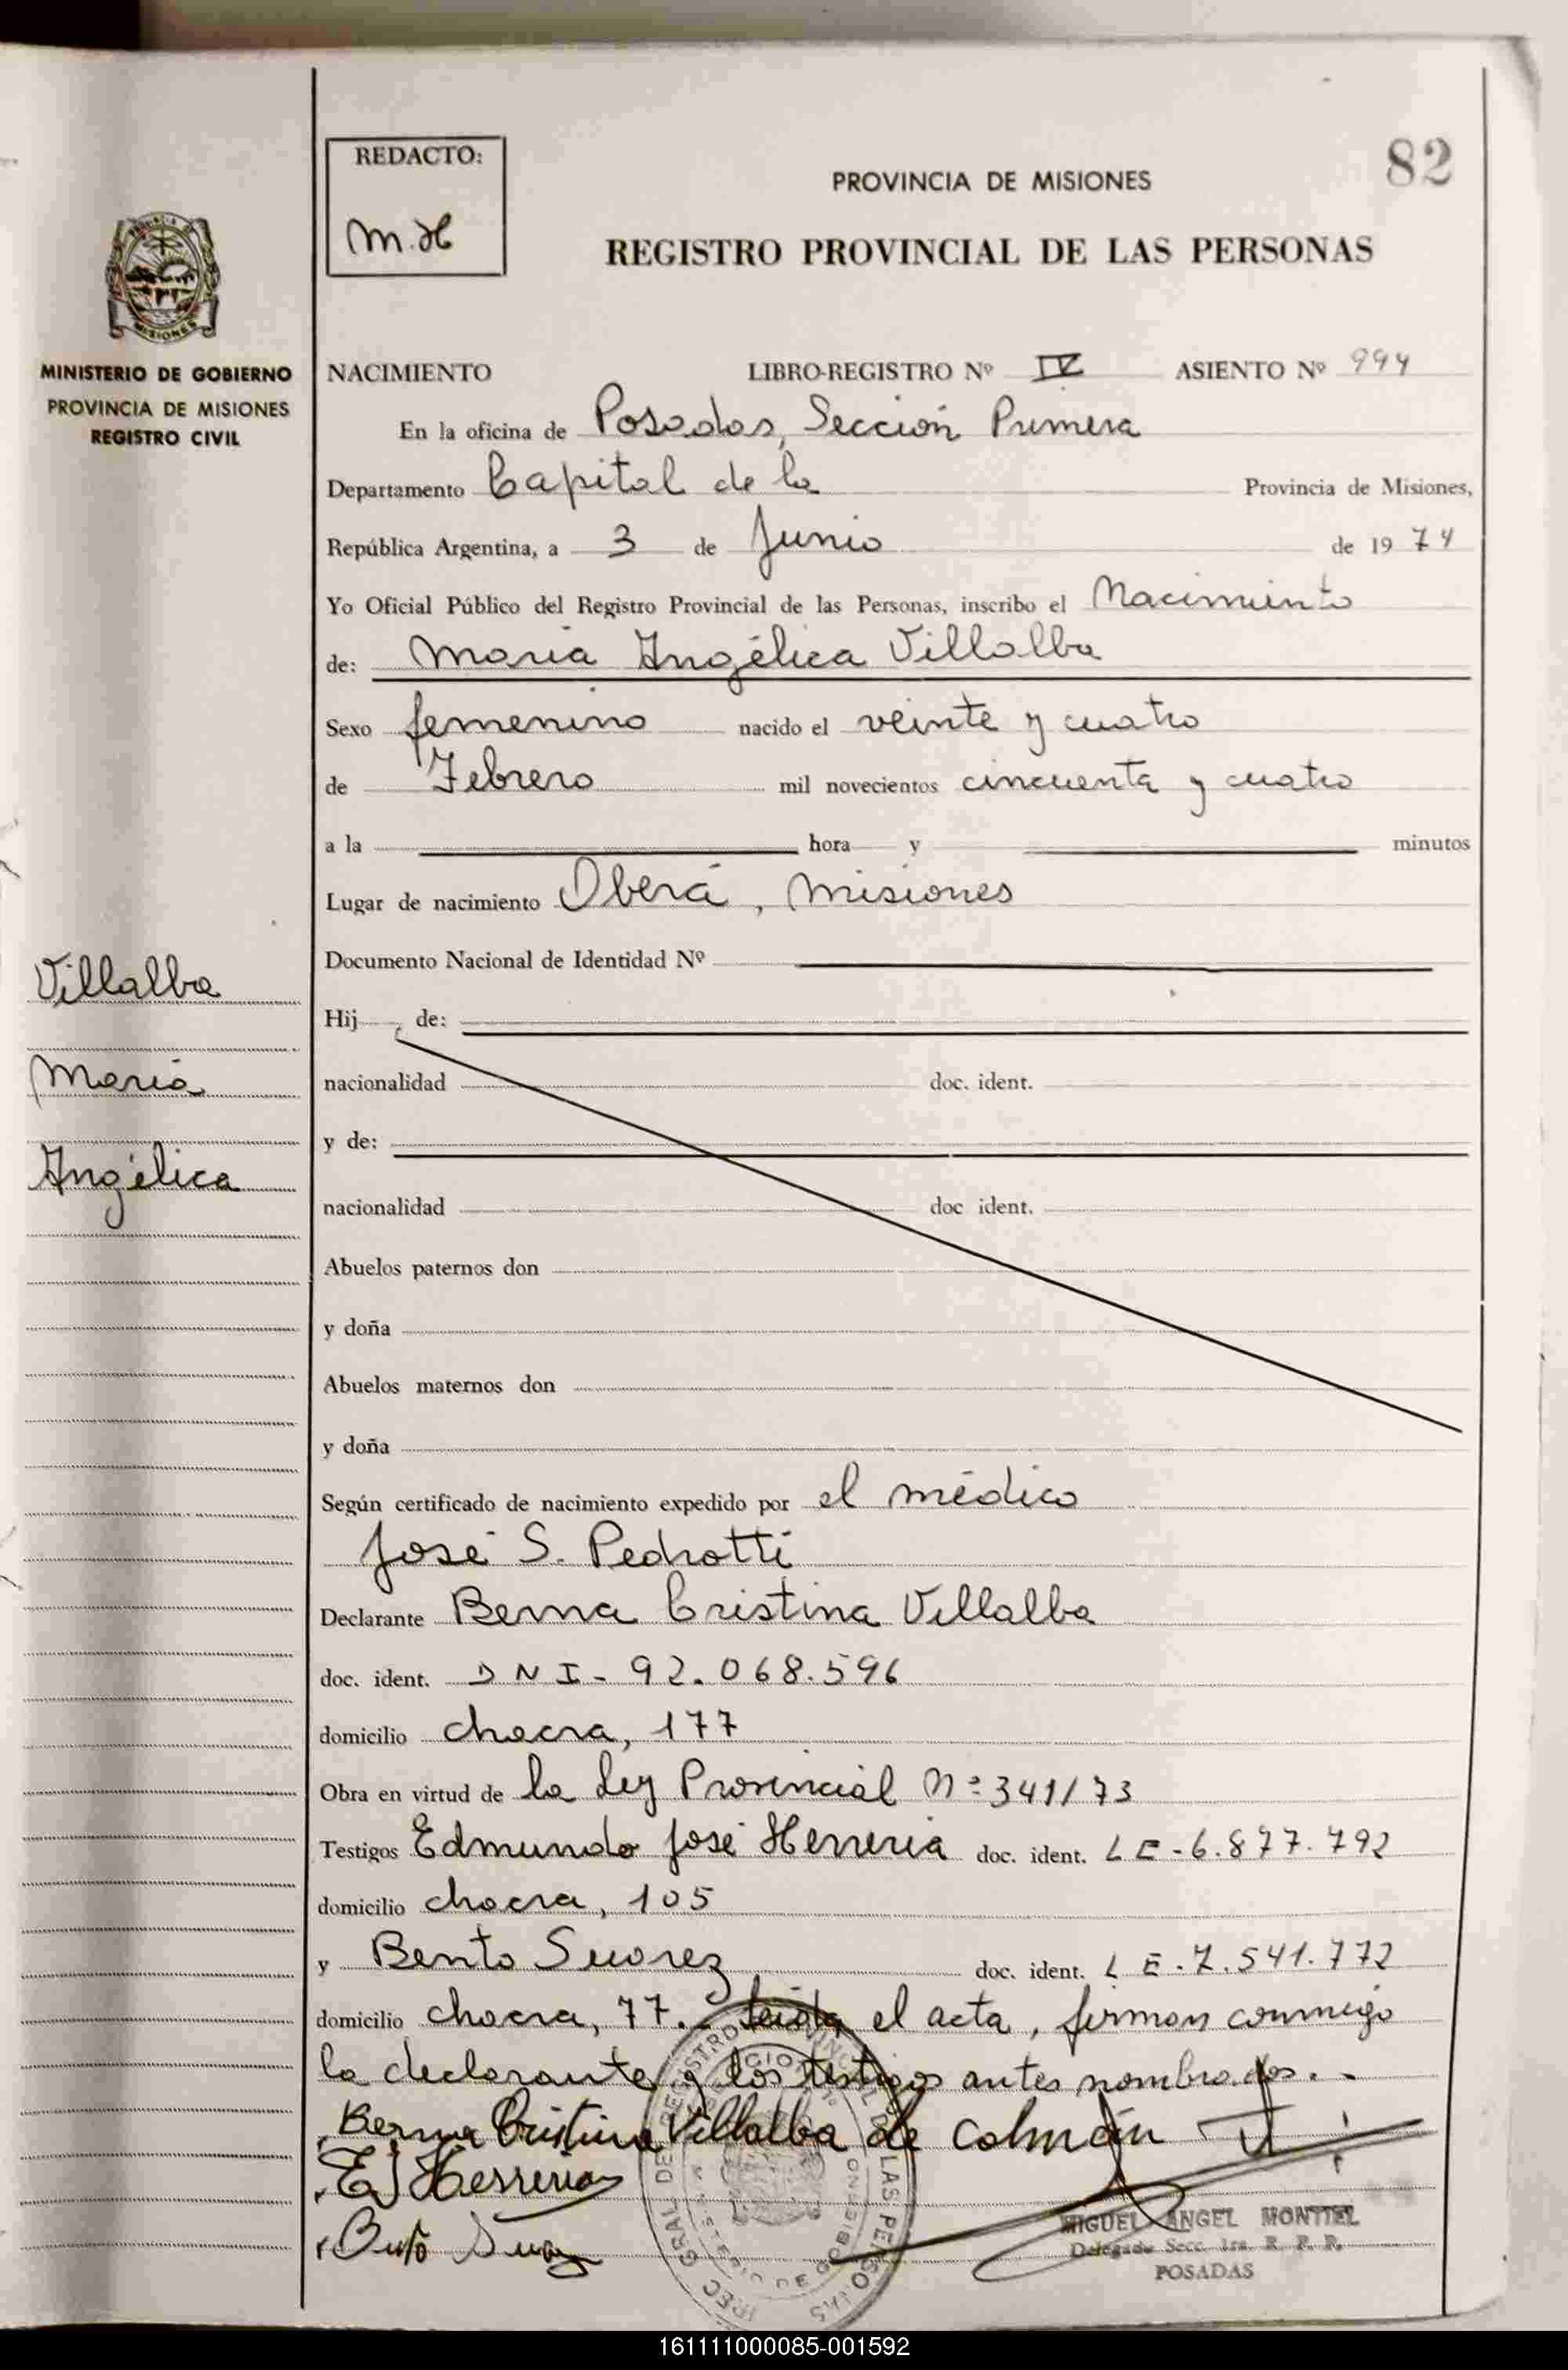 REDACTO:
M.H
82
PROVINCIA DE MISIONES
REGISTRO PROVINCIAL DE LAS PERSONAS
MISIONES
MINISTERIO DE GOBIERNO
PROVINCIA DE MISIONES
REGISTRO CIVIL
NACIMIENTO LIBRO-REGISTRO Nº IV ASIENTO Nº 994
En la oficina de Posadas, Sección Primera
Departamento Capital de la Provincia de Misiones,
República Argentina, a 3 de Junio de 1974
Yo Oficial Público del Registro Provincial de las Personas, inscribo el Nacimiento
de: María Angélica Villalba
Sexo femenino nacido el veinte y cuatro
de Febrero mil novecientos cincuenta y cuatro
a la hora y minutos
Lugar de nacimiento Oberá, Misiones
Documento Nacional de Identidad Nº
Villalba
María
Angélica
Hij de:
nacionalidad doc. ident.
y de:
nacionalidad doc ident.
Abuelos paternos don
y doña
Abuelos maternos don
y doña
Según certificado de nacimiento expedido por el médico
José S. Pedrotti
Declarante Berna Cristina Villalba
doc. ident. DNI-92.068.596
domicilio chacra, 177
Obra en virtud de la Ley Provincial Nº 341/73
Testigos Edmundo José Herrería doc. ident. LE-6.877.792
domicilio chacra, 105
y Bento Suarez doc. ident. LE.7.541.772
domicilio chacra, 77.- Leída el acta, firman conmigo
la declarante y los testigos antes nombrados.-
Berna Cristina Villalba de Colmán
EJ Herrería
MIGUEL ANGEL MONTIEL
Delegado Secc. 1ra. R. P. P.
POSADAS
161111000085-001592